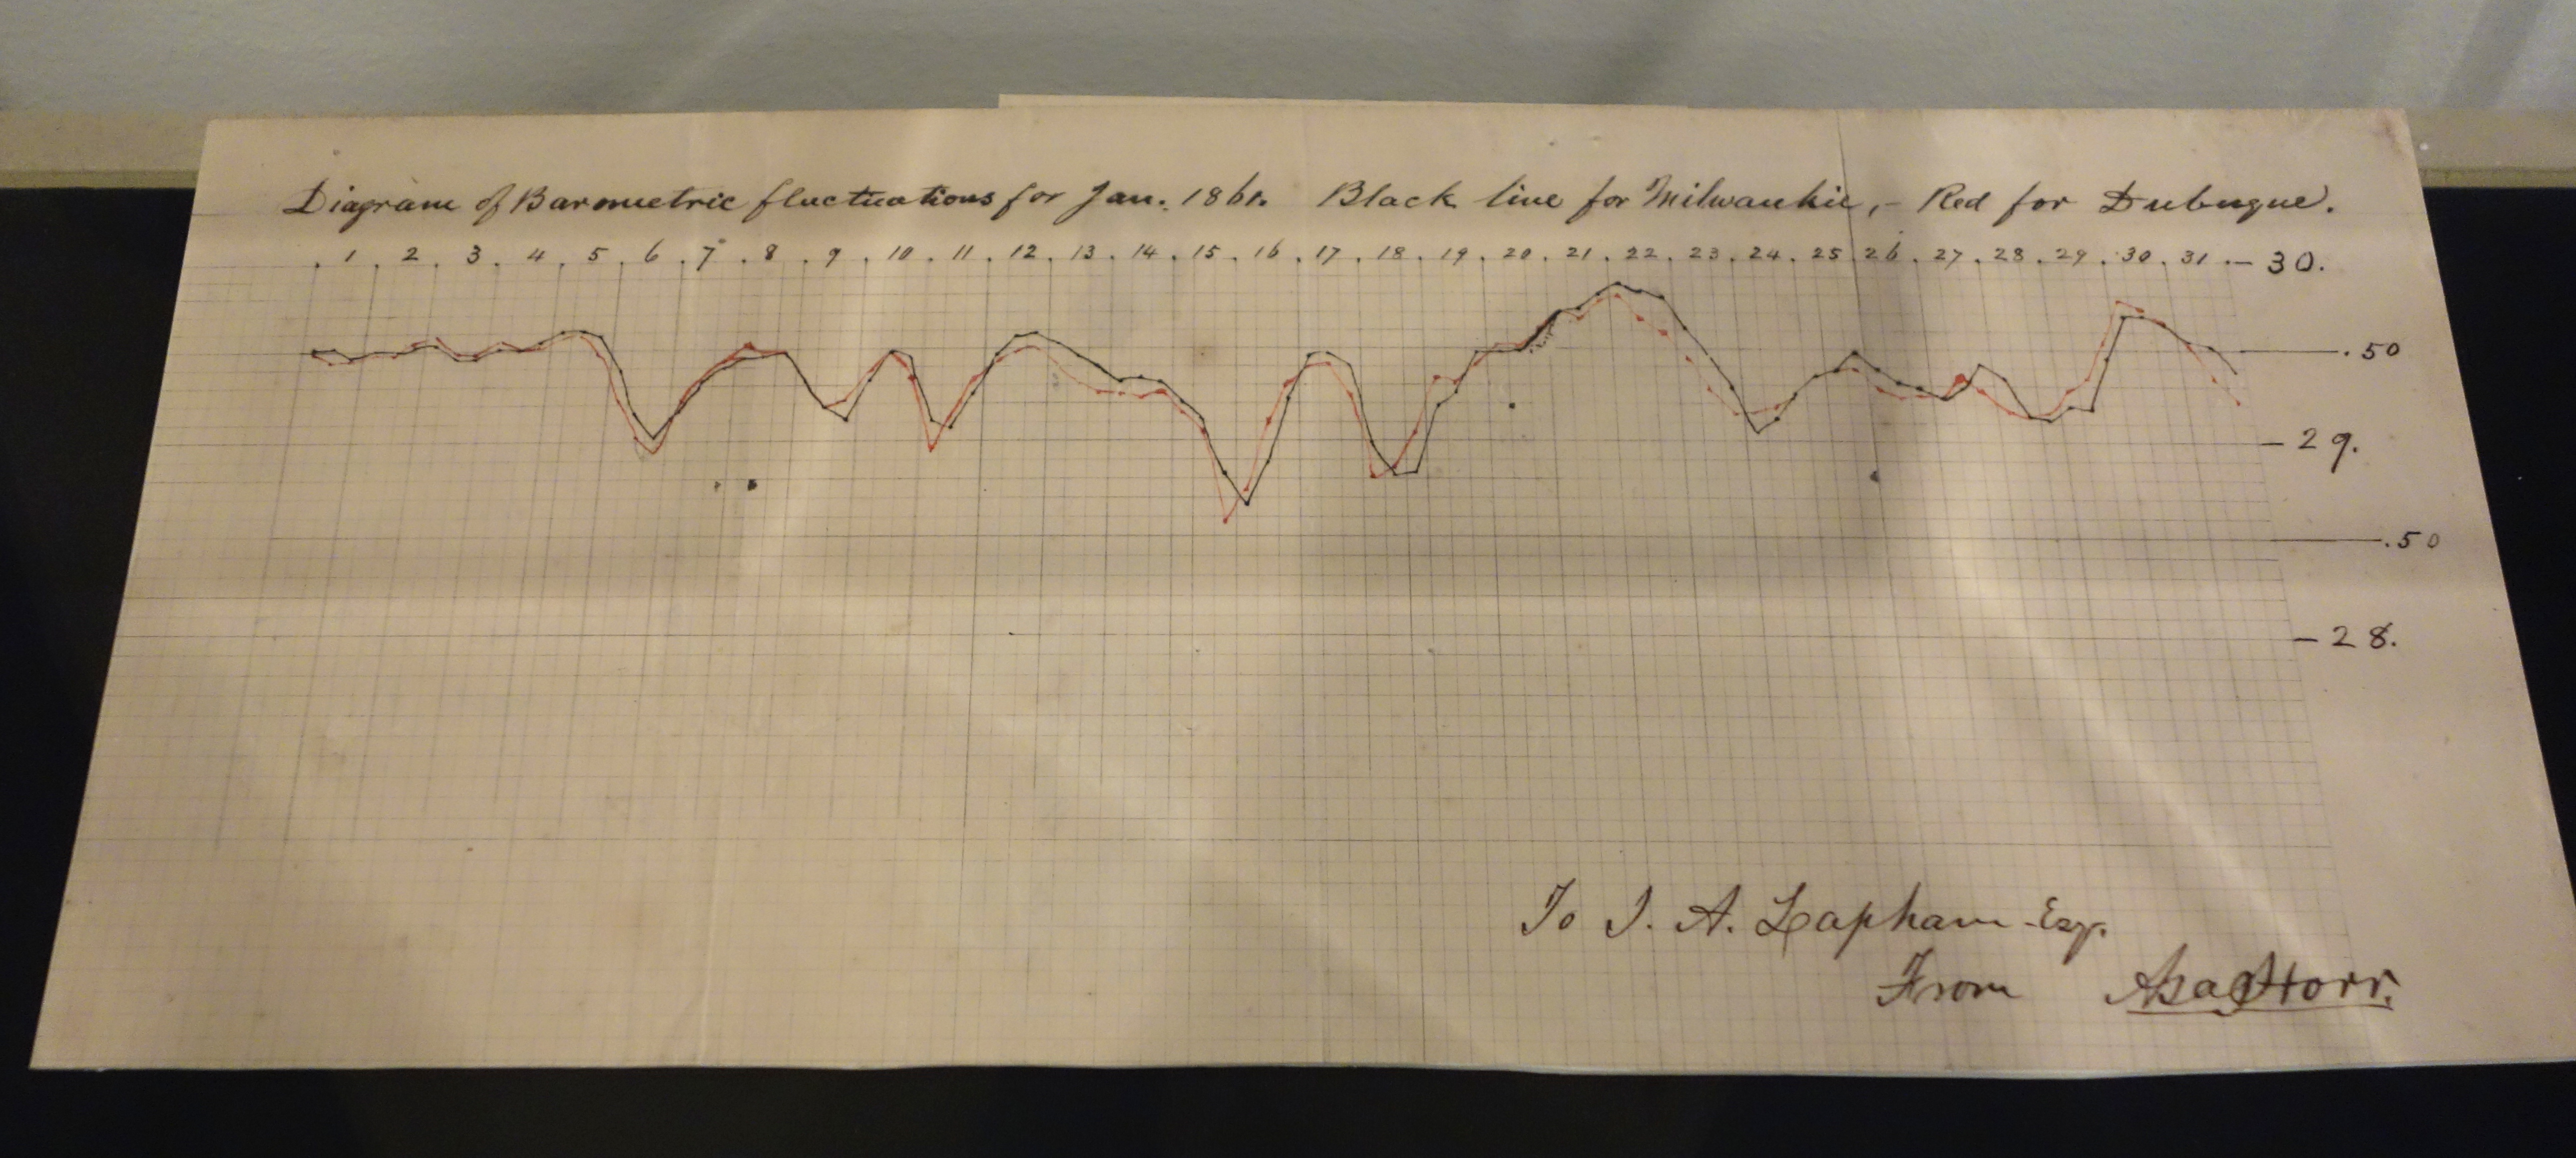 Diagram of Barometric fluctuations for Jan. 1861. Black line for Milwaukie, - Red for Dubuque.
1 2 3 4 5 6 7 8 9 10 11 12 13 14 15 16 17 18 19 20 21 22 23 24 25 26 27 28 29 30 31 - 30.
.50
- 29.
.50
- 28.
To I. A. Lapham Esq.
From Asa Horr.